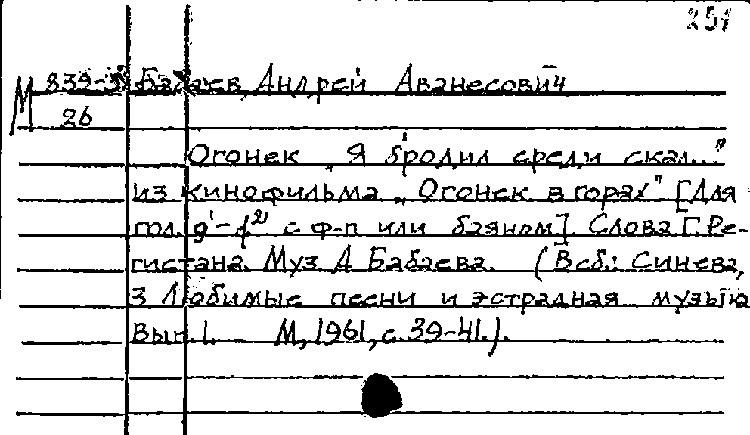 251
М 839-3 Бабаев, Андрей Аванесович
26
Огонек „Я бродил среди скал..."
из кинофильма „Огонек в горах" [Для
гол. g'-f² с ф-п или баяном]. Слова Г. Ре-
гистана. Муз. А. Бабаева. (В сб.: Синева,
З. Любимые песни и эстрадная музыка
Вып. 1. М., 1961, с. 39-41.).